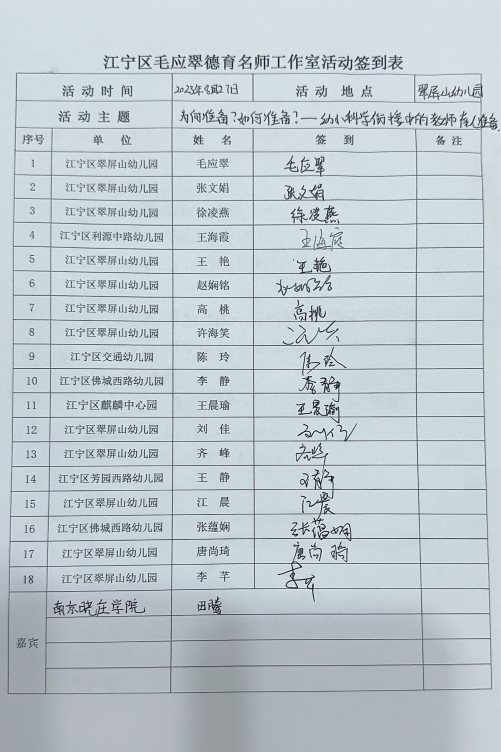 江宁区毛应翠德育名师工作室活动签到表
活动时间 2023年8月27日 活动地点 翠屏山幼儿园
活动主题 为何准备?如何准备?——幼小科学衔接中的教师育人准备
序号 单位 姓名 签到 备注
1 江宁区翠屏山幼儿园 毛应翠 毛应翠
2 江宁区翠屏山幼儿园 张文娟 张文娟
3 江宁区翠屏山幼儿园 徐凌燕 徐凌燕
4 江宁区利源中路幼儿园 王海霞 王海霞
5 江宁区翠屏山幼儿园 王艳 王艳
6 江宁区翠屏山幼儿园 赵娴铭
7 江宁区翠屏山幼儿园 高桃 高桃
8 江宁区翠屏山幼儿园 许海笑
9 江宁区交通幼儿园 陈玲 陈玲
10 江宁区佛城西路幼儿园 李静 李静
11 江宁区麒麟中心园 王晨瑜 王晨瑜
12 江宁区翠屏山幼儿园 刘佳
13 江宁区翠屏山幼儿园 齐峰
14 江宁区芳园西路幼儿园 王静 王静
15 江宁区翠屏山幼儿园 江晨 江晨
16 江宁区佛城西路幼儿园 张蕴娴 张蕴娴
17 江宁区翠屏山幼儿园 唐尚琦 唐尚琦
18 江宁区翠屏山幼儿园 李芊 李芊
嘉宾 南京晓庄学院 田腾